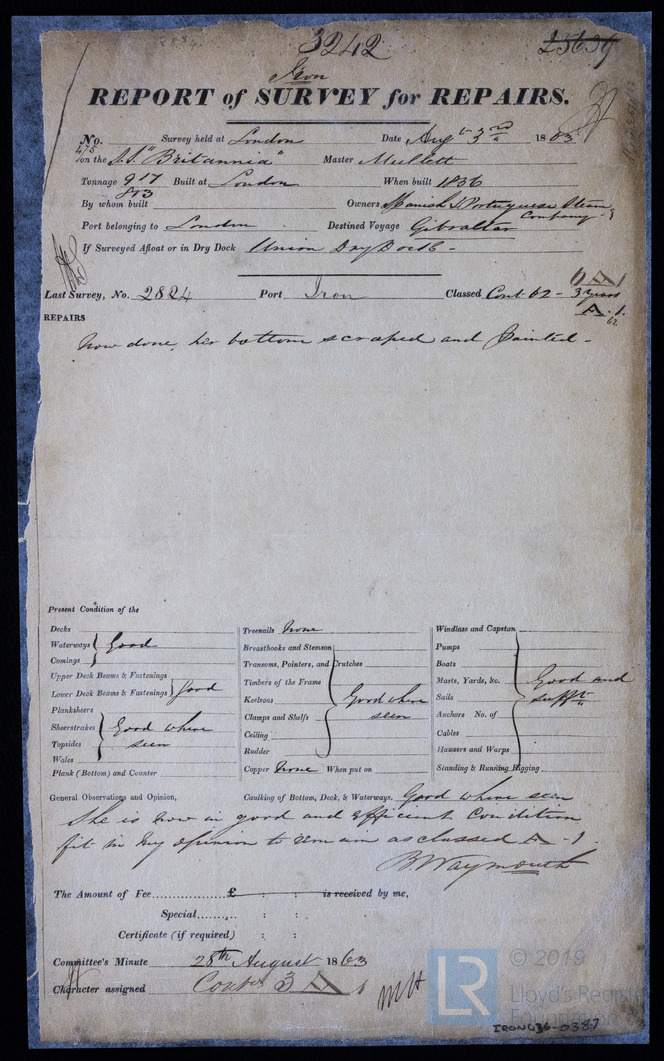 3242
23639
Iron
REPORT of SURVEY for REPAIRS.
No. 475 Survey held at London Date Augt 3rd 1863
on the S.S. "Britannia" Master Mullett
Tonnage 917 Built at London When built 1836
873
By whom built Owners Spanish & Portuguese Steam Company
Port belonging to London Destined Voyage Gibraltar
If Surveyed Afloat or in Dry Dock Union Dry Dock -
Last Survey, No. 2824 Port Iron Classed Cont 62 - 3 years
A.1.
62
REPAIRS
Now done, her bottom scraped and Painted -
Present Condition of the
Decks
Waterways Good
Comings
Upper Deck Beams & Fastenings
Lower Deck Beams & Fastenings Good
Planksheers
Sheerstrakes Good where
Topsides seen
Wales
Plank (Bottom) and Counter
Treenails None
Breasthooks and Stemson
Transoms, Pointers, and Crutches
Timbers of the Frame
Keelsons Good where
Clamps and Shelfs seen
Ceiling
Rudder
Copper None When put on
Windlass and Capstan
Pumps
Boats
Masts, Yards, &c. Good and
Sails sufft
Anchors No. of
Cables
Hawsers and Warps
Standing & Running Rigging
General Observations and Opinion, Caulking of Bottom, Deck, & Waterways. Good where seen
She is now in good and efficient Condition
fit in my opinion to remain as classed A-1
B Waymouth
The Amount of Fee £ : : is received by me,
Special : :
Certificate (if required) : :
Committee's Minute 28th August 1863
Character assigned 3 A 1
© 2019
LR Lloyd's Register
Foundation
IRON436-0387